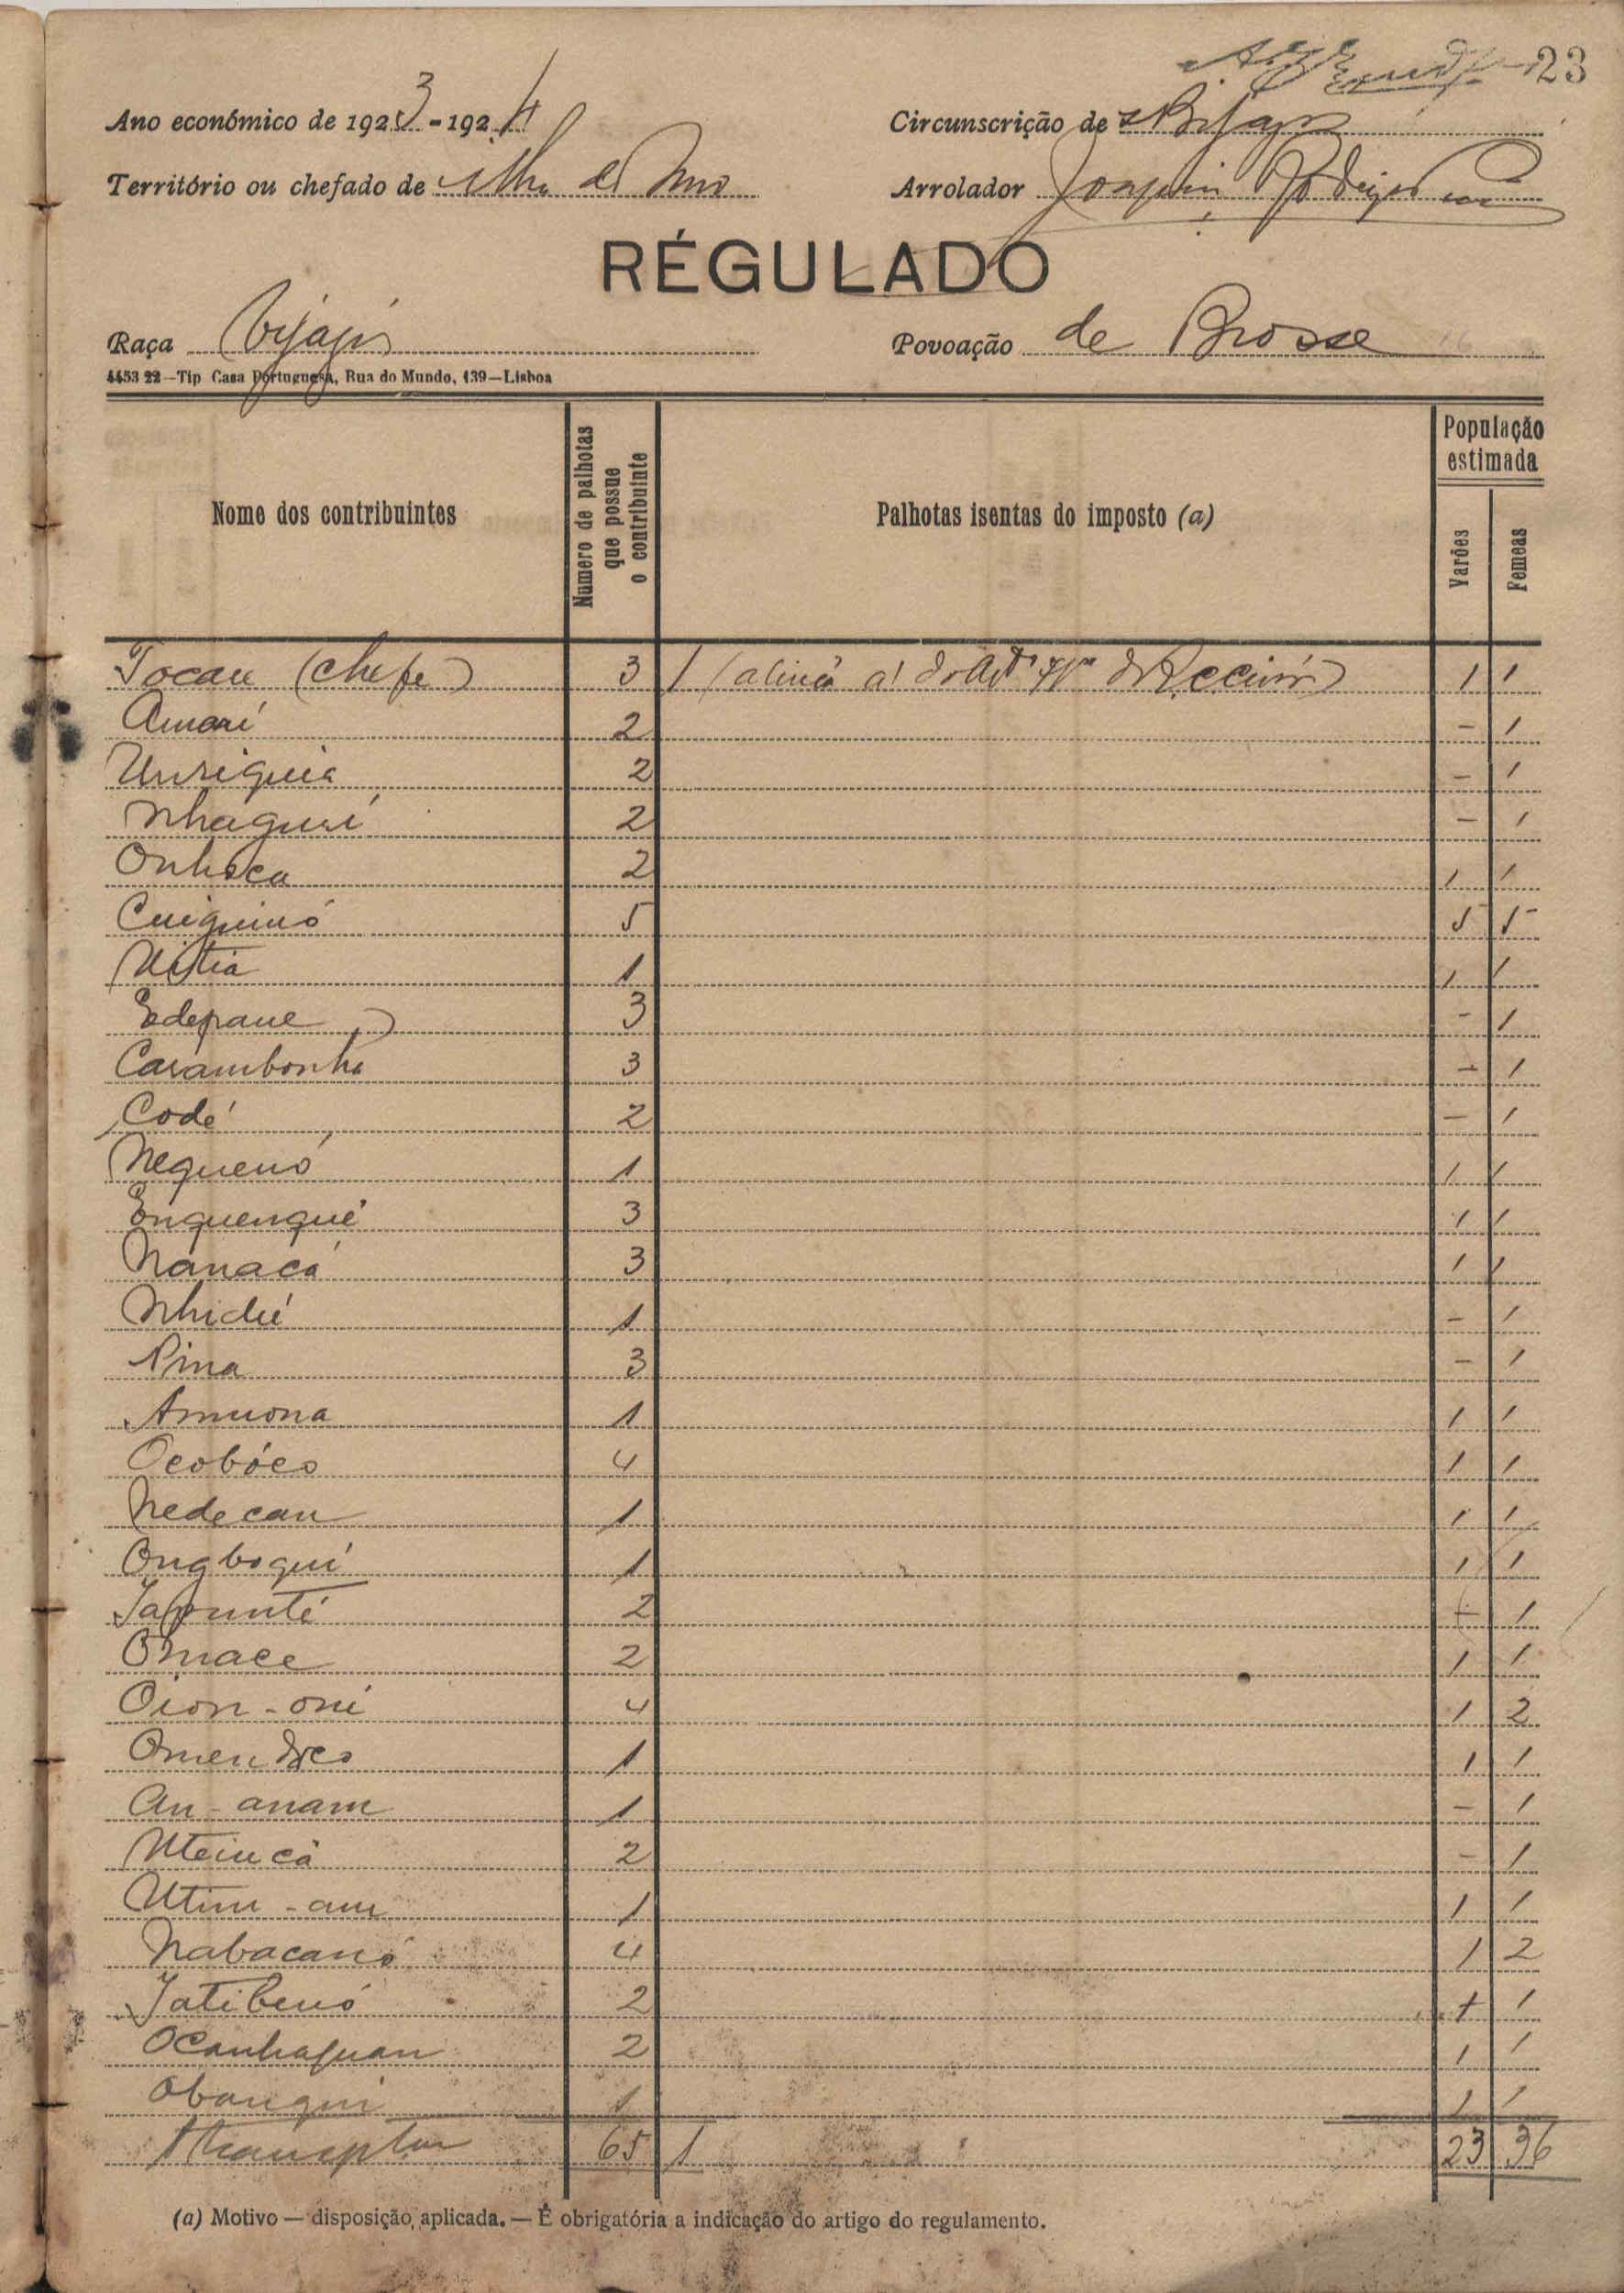 23
Ano económico de 1923-1924
Circunscrição de Bijagós
Território ou chefado de ilha de Uno
Arrolador Joaquim Rodrigues
RÉGULADO
Raça Bijagós
Povoação de Brosse
4453 22—Tip Casa Portuguesa, Rua do Mundo, 139—Lisboa
Nome dos contribuintes
Numero de palhotas que possue o contribuinte
Palhotas isentas do imposto (a)
População estimada
Varões
Femeas
Tocau (chefe) 3 1 (alinea a) do Artº 4º do R. 1 1
Amorí 2 - 1
Unriguia 2 - 1
Nhaguri 2 - 1
Onhoca 2 1 1
Cuiguinó 5 5 5
Untia 1 1 1
Edepane 3 - 1
Carambonha 3 - 1
Codé 2 - 1
Nequenó 1 1 1
Enquenqué 3 1 1
Nanacá 3 1 1
Nhidú 1 - 1
Pina 3 - 1
Amuona 1 1 1
Ocobóco 4 1 1
Nedecau 1 1 1
Ongboqui 1 1 1
Japunté 2 - 1
Omace 2 1 1
Oion-oni 4 1 2
Omendoco 1 1 1
An-anam 1 - 1
Uteiucá 2 - 1
Utim-am 1 1 1
Nabacanó 4 1 2
Jatibenó 2 1 1
Ocanhaguan 2 1 1
Obanqui 1 1 1
65 1 23 36
(a) Motivo — disposição, aplicada. — É obrigatória a indicação do artigo do regulamento.